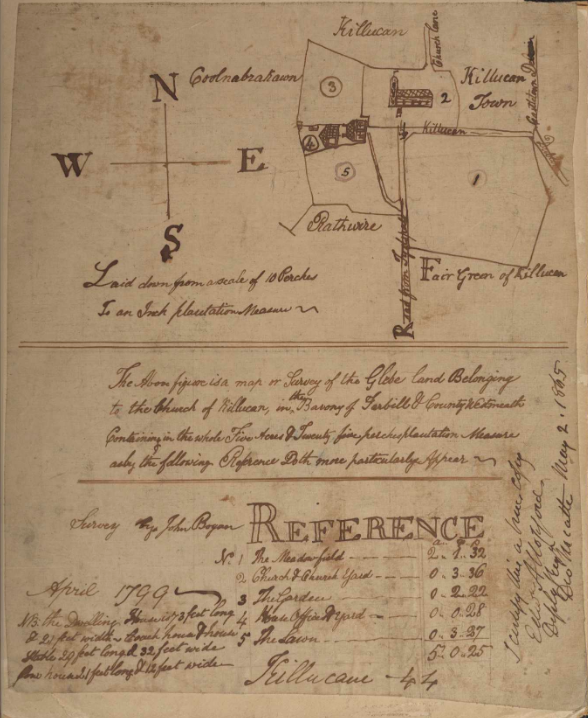 Killucan
Church Lane
Coolnabrakawn
N
W
E
S
3
2
Killucan
Town
Killucan
4
5
1
Rathwire
Road from
Fair Green of Killucan
Laid down from a scale of 10 Perches
To an Inch plantation Measure
The Above figure is a map or Survey of the Glebe land Belonging
to the Church of Killucan, in the Barony of Farbill & County Westmeath
Containing in the whole Five Acres & Twenty five perches plantation Measure
as by the following Reference Doth more particularly Appear
Survey by John Bryan
REFERENCE
No. 1 The Meadowfield 2 " 1 " 32
2 Church & Church Yard 0 " 3 " 36
3 The Garden 0 " 2 " 22
4 House Office & Yard 0 " 0 " 28
5 The Lawn 0 " 3 " 27
5 " 0 " 25
April 1799
NB. the Dwelling House 73 feet long
& 21 feet width Coach house &
Stable 29 feet long & 32 feet wide
house 21 feet long & 12 feet wide
Killucane - 44
I certify this a true copy
Depty Regr
May 2. 1805